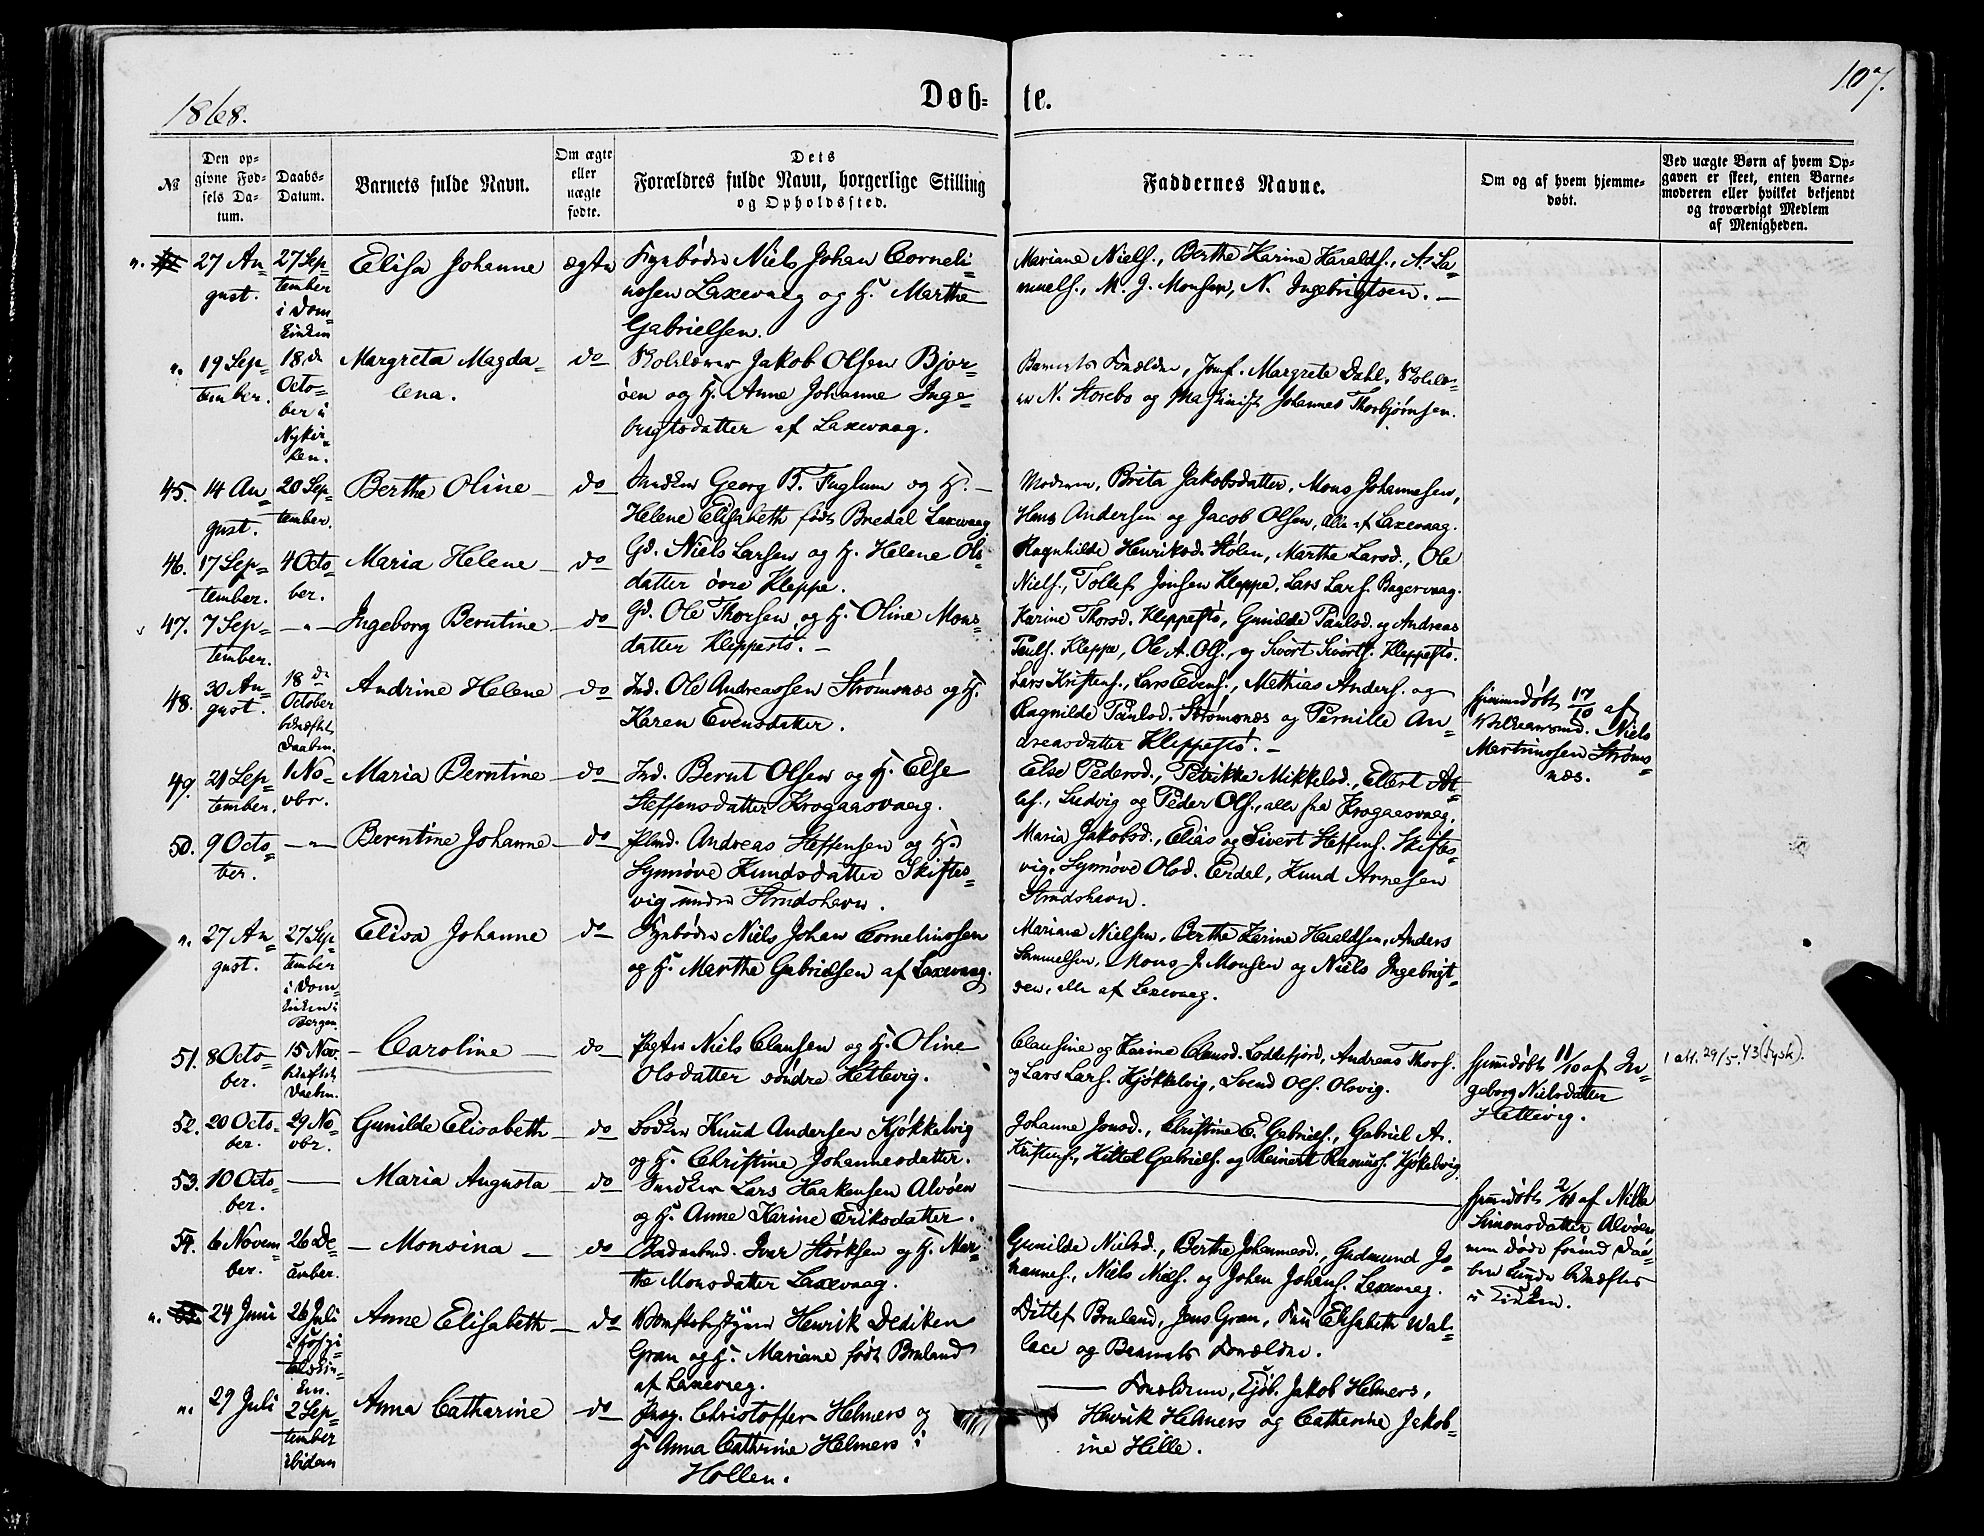 1868.
Døb-te.
107.
№
Den op-
givne Fød-
sels Da-
tum.
Daabs-
Datum.
Barnets fulde Navn.
Om ægte
eller
uægte
fødte.
Dets
Forældres fulde Navn, borgerlige Stilling
og Opholdssted.
Faddernes Navne.
Om og af hvem hjemme-
døbt.
Ved uægte Børn af hvem Op-
gaven er skeet, enten Barne-
moderen eller hvilket bekjendt
og troværdigt Medlem
af Menigheden.
27 Au-
gust.
27 Sep-
tember
i Dom-
kirken
Elisa Johanne
ægte
Fyrbøder Niels Johan Corneli-
ussen Laxevaag og H. Marthe
Gabrielsen.
Mariane Niels., Berthe Karine Haralds., A. Sa-
muels., M. J. Monsen, N. Ingebrigtsen.
19 Sep-
tember.
18 de
Octo-
ber i
Nykir-
ken.
Margreta Magda-
lena.
do
Skolelærer Jakob Olsen Bjor-
øen og H. Anne Johanne Inge-
brigtsdatter af Laxevaag.
Barnets Forældre, Jomf. Margrete Dahl, Skolelæ-
er N. Storebo og Maskinist Johannes Thorbjørnsen.
45.
14 Au-
gust.
20 Sep-
tember.
Berthe Oline
do
Snedker Georg B. Fuglum og H.
Helene Elisabeth født Bredal Laxevaag
Moderen, Brita Jakobsdatter, Mons Johannesen,
Hans Andersen og Jacob Olsen, alle af Laxevaag.
46.
17 Sep-
tember.
4 Octo-
ber.
Maria Helene
do
Gd. Niels Larsen og H. Helene Ols-
datter övre Kleppe.
Ragnhilde Henriksd. Stølen, Marthe Larsd., Ole
Niels., Tollef Jonsen Kleppe, Lars Lars. Bagervaag.
47.
7 Sep-
tember.
Ingeborg Berntine
do
Gd. Ole Thorsen og H. Oline Mons-
datter Kleppestø.
Karine Thorsd. Kleppestø, Gunilde Paulsd. og Andreas
Pauls. Kleppe, Ole A. Ols., og Sivert Siverts. Kleppestø.
48.
30 Au-
gust.
18 de
October
bekræftet
Daaben.
Andrine Helene
do
Ind. Ole Andreassen Strømsnæs og H.
Karen Evensdatter.
Lars Kristens., Lars Evens., Mathias Anders. og
Ragnilde Paulsd. Strømsnæs og Pernille An-
dreasdatter Kleppestø.
Hjemmedøbt 17/10 af
Niels
Martinussen Strøms-
næs.
49.
21 Sep-
tember.
1 No-
vbr.
Maria Berntine
do
Ind. Bernt Olsen og H. Else
Steffensdatter Krogaasvaag.
Else Pedersd., Petrikke Mikkelsd., Ellert At-
lef., Ludvig og Peder Ols., alle fra Krogaasvaag.
50.
9 Octo-
ber.
Berntine Johanne
do
Plmd. Andreas Steffensen og H.
Synnøve Knudsdatter Skiftes-
vig under Strudshavn.
Maria Jakobsd., Elias og Sivert Steffens. Skiftes-
vig, Synnøve Olsd. Erdal, Knud Arnesen
Strudshavn.
27 Au-
gust.
27 Sep-
tember
i Dom-
kirken i
Bergen
Elisa Johanne
do
Fyrbøder Niels Johan Corneliussen
og H. Marthe Gabrielsen af Laxevaag.
Mariane Nielsen, Berthe Karine Haraldsen, Anders
Samuelsen, Mons J. Monsen og Niels Ingebrigt-
sen, alle af Laxevaag.
51.
8 Octo-
ber.
15 Nov.
bekræftet
Daaben.
Caroline
do
Pagter Niels Clausen og H. Oline
Olsdatter søndre Hettevig.
Clausine og Karine Clausd. Loddefjord, Andreas Thors.
og Lars Lars. Kjøkkelvig, Svend Ols. Olsvig.
Hjemmedøbt 11/10 af In-
geborg Nielsdatter
Hettevig.
1 att. 29/5.43 (tysk).
52.
20 Octo-
ber.
29 No-
vbr.
Gunilde Elisabeth
do
Bødker Knud Andersen Kjøkkelvig
og H. Christine Johannesdatter.
Johanne Jonsd., Christine E. Gabriels., Gabriel A.
Kristens., Kittel Gabriels. og Reinert Rasmuss. Kjøkelvig.
53.
10 Octo-
ber.
Maria Augusta
do
Snedker Lars Haakensen Alvøen
og H. Anne Karine Eriksdatter.
Hjemmedøbt 2/11 af Nille
Simonsdatter Alvøen
men døde forind Daa-
ben kunde bekræftes
i Kirken.
54.
6 Novem
ber.
26 De-
cember.
Monsina
do
Iver Størksen og H. Mar-
the Monsdatter Laxevaag.
Gunilde Nielsd., Berthe Johannesd., Gudmund Jo-
hannes., Niels Niels. og Johan Johans. Laxevaag.
24 Juni
26 Juli
i Hospi-
talskir-
ken.
Anne Elisabeth
do
Værftsbestyrer Henrik Dediken
Gran og H. Mariane født Bruland
af Laxevaag.
Ditlef Bruland, Jens Gran, Fru Elisabeth Wal-
lace og Barnets Forældre.
29 Juli
2 Sep-
tember
ibidem
Anna Catharine
do
Christoffer Helmers og
H. Anna Cathrine Helmers i
Hollen.
Forældrene, Kjøb. Jakob Helmers,
Henrik Helmers og Catharine Jakob-
ine Hille.